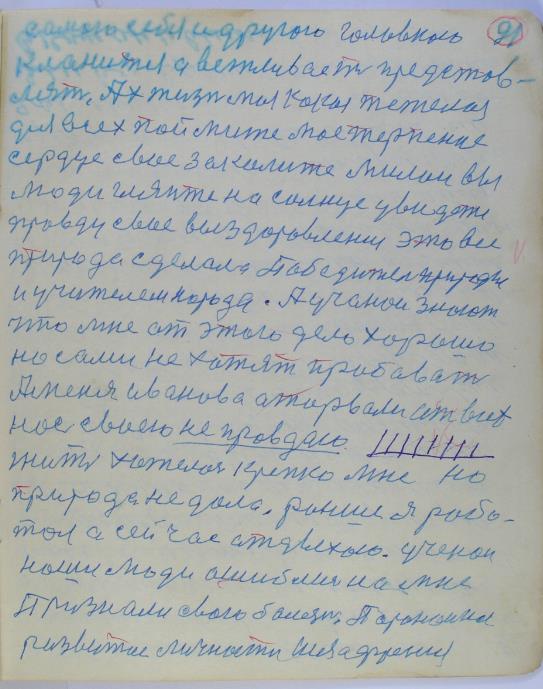 самого себя и другого головною 91
кланится а вежливасть предстов-
лят. Ах жизн моя какоя тежелоя
для всех поймите мое терпение
сердце свое закалите милои вы
люди гляньте на солнце увидете
правду свое выздоровлении это все
природа сделала Победителем природы
и учителем народа. А учонои знают
что мне от этого дело хорошо
но сами не хотят пробавать
А меня Иванова аторвали от всех
нос своею не правдаю.
жить хателоя крепко мне но
природа не дала. ранше я робо-
тол а сей час атдыхою. ученои
ноши люди ашиблис на мне
Признали свого болезн. Параноика
развитое личности Шизафрения